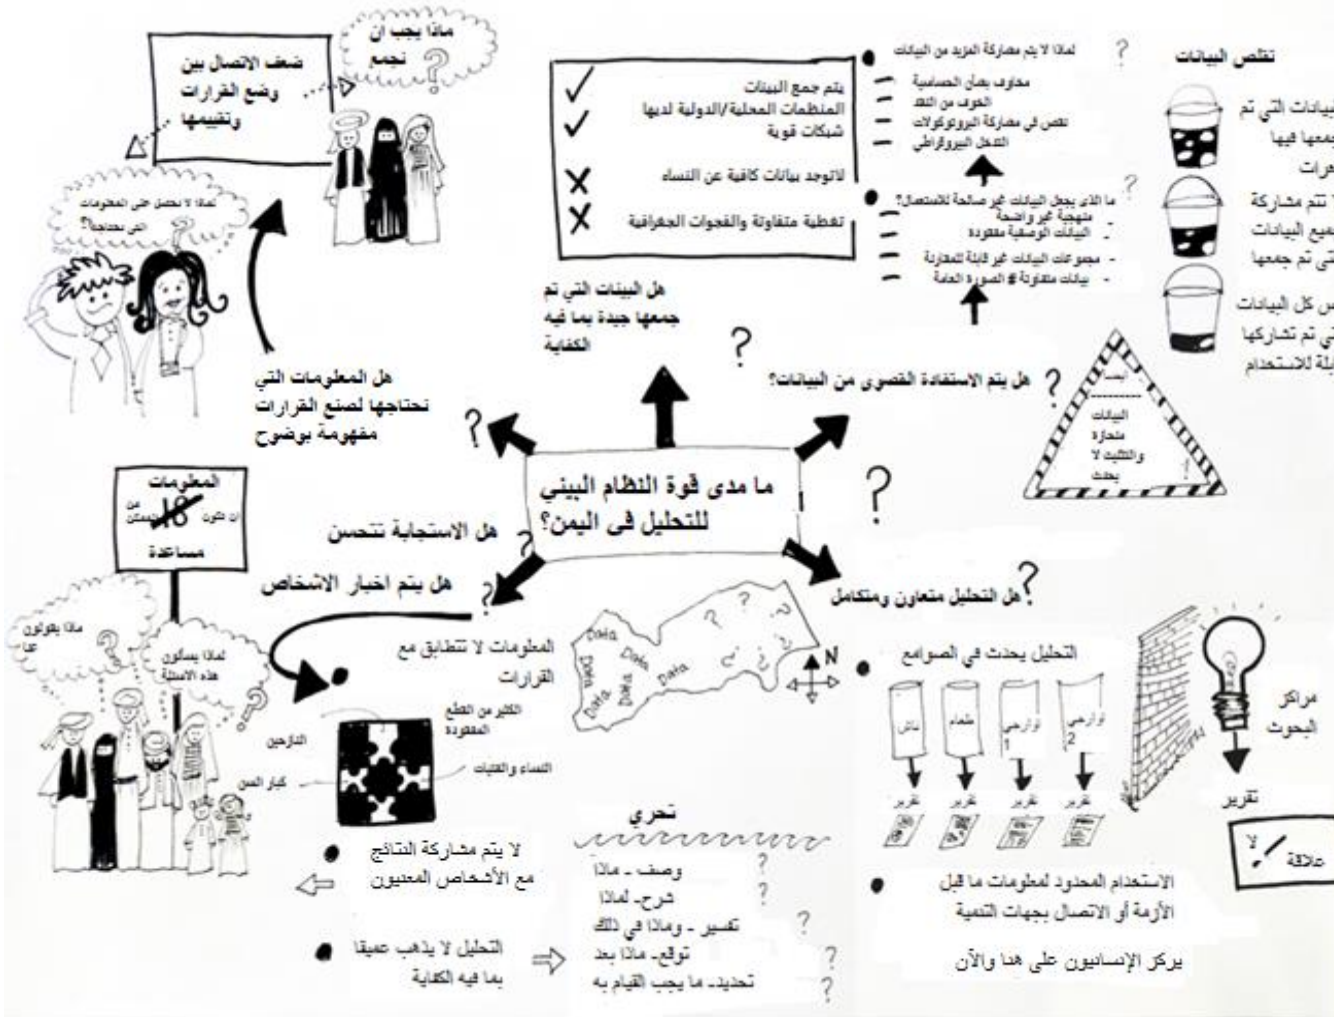 ماذا يجب ان
نجمع
ضعف الاتصال بين
وضع القرارات
وتقييمها
لماذا لا نحصل على المعلومات
التي نحتاجها؟
هل المعلومات التي
نحتاجها لصنع القرارات
مفهومة بوضوح
يتم جمع البينات
المنظمات المحلية/الدولية لديها
شبكات قوية
لاتوجد بيانات كافية عن النساء
تغطية متفاوتة والفجوات الجغرافية
هل البينات التي تم
جمعها جيدة بما فيه
الكفاية
لماذا لا يتم مشاركة المزيد من البيانات
مخاوف بشأن الحساسية
الخوف من النقد
نقص في مشاركة البروتوكولات
التدخل البيروقراطي
ما الذي يجعل البيانات غير صالحة للاستعمال؟
منهجية غير واضحة
البيانات الوصفية مفقودة
- مجموعات البيانات غير قابلة للمقارنة
- بيانات متفاوتة # الصورة العامة
هل يتم الاستفادة القصوى من البيانات؟
تقلص البيانات
التي تم
جمعها فيها
تتم مشاركة
البيانات
تم جمعها
كل البيانات
تم تشاركها
للاستخدام
البيانات
منحازة
والتثليث لا
يحدث
ما مدى قوة النظام البيني
للتحليل في اليمن؟
المعلومات
ان تكون
من
الممكن
مساعدة
هل الاستجابة تتحسن
هل يتم اخبار الاشخاص
ماذا يقولون
عنا
لماذا يسألون
هذه الاسئلة
المعلومات لا تتطابق مع
القرارات
الكثير من القطع
المفقودة
النازحين
النساء والفتيات
كبار السن
لا يتم مشاركة النتائج
مع الأشخاص المعنيون
التحليل لا يذهب عميقا
بما فيه الكفاية
تحري
وصف - ماذا
شرح- لماذا
تفسير - وماذا في ذلك
توقع- ماذا بعد
تحديد- ما يجب القيام به
Data
Data
Data
Data
Data
Data
Data
N
هل التحليل متعاون ومتكامل
التحليل يحدث في الصوامع
طعام
تقرير
تقرير
تقرير
تقرير
مراكز
البحوث
تقرير
لا
علاقة
الاستخدام المحدود لمعلومات ما قبل
الأزمة أو الاتصال بجهات التنمية
يركز الإنسانيون على هنا والآن